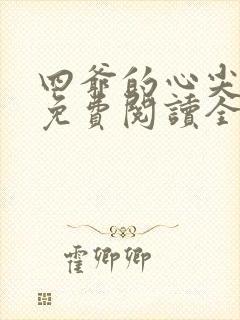 四爺的心尖
免費閱讀全
霍卿卿